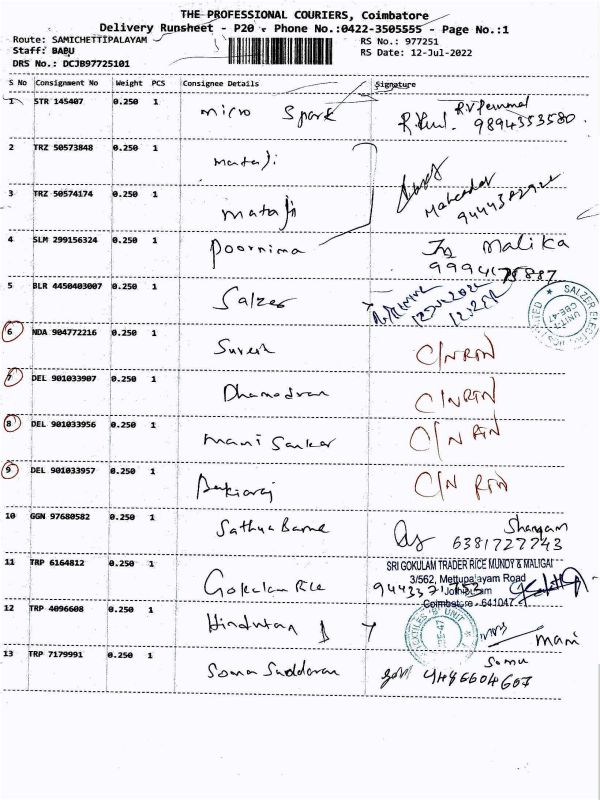 THE PROFESSIONAL COURIERS, Coimbatore
Delivery Runsheet - P20 - Phone No.:0422-3505555 - Page No.:1
Route: SAMICHETTIPALAYAM RS No.: 977251
Staff: BABU RS Date: 12-Jul-2022
DRS No.: DCJB97725101
S No Consignment No Weight PCS Consignee Details Signature
1 STR 145407 0.250 1 micro Spark R.V.Perumal
9894353580
2 TRZ 50573848 0.250 1 mataji
3 TRZ 50574174 0.250 1 mataji
4 SLM 299156324 0.250 1 Poornima Malika
5 BLR 4450403007 0.250 1 Salzer
SALZER UNIT-1 CBE-47
6 NDA 904772216 0.250 1 Suresh C/N RTN
7 DEL 901033907 0.250 1 Dhamodran C/N RTN
8 DEL 901033956 0.250 1 mani Sankar C/N RTN
9 DEL 901033957 0.250 1 C/N RTN
10 GGN 97680582 0.250 1 Sathya
6381727743
SRI GOKULAM TRADER RICE MUNDY & MALIGAI
11 TRP 6164812 0.250 1 Gokulam Rice 3/562, Mettupalayam Road
Coimbatore - 641047
12 TRP 4096608 0.250 1 Hindustan mani
13 TRP 7179991 0.250 1 Soma Sundaram Somu